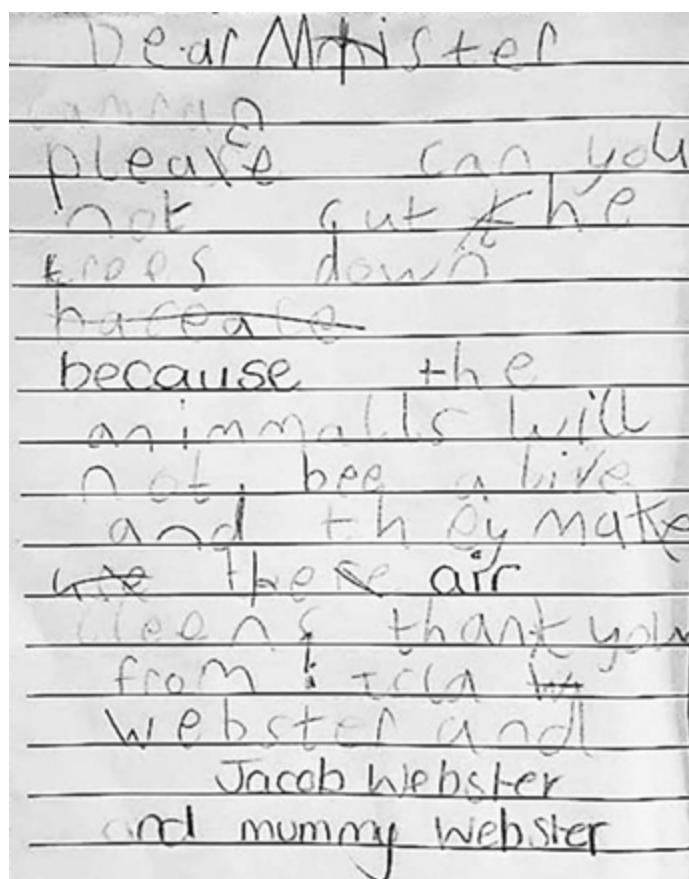 Dear Minister
please can you
not cut the
trees down
because the
animmalls will
not bee alive
and they make
the air
cleens thank you
from Isla
Webster and
Jacob Webster
and mummy Webster